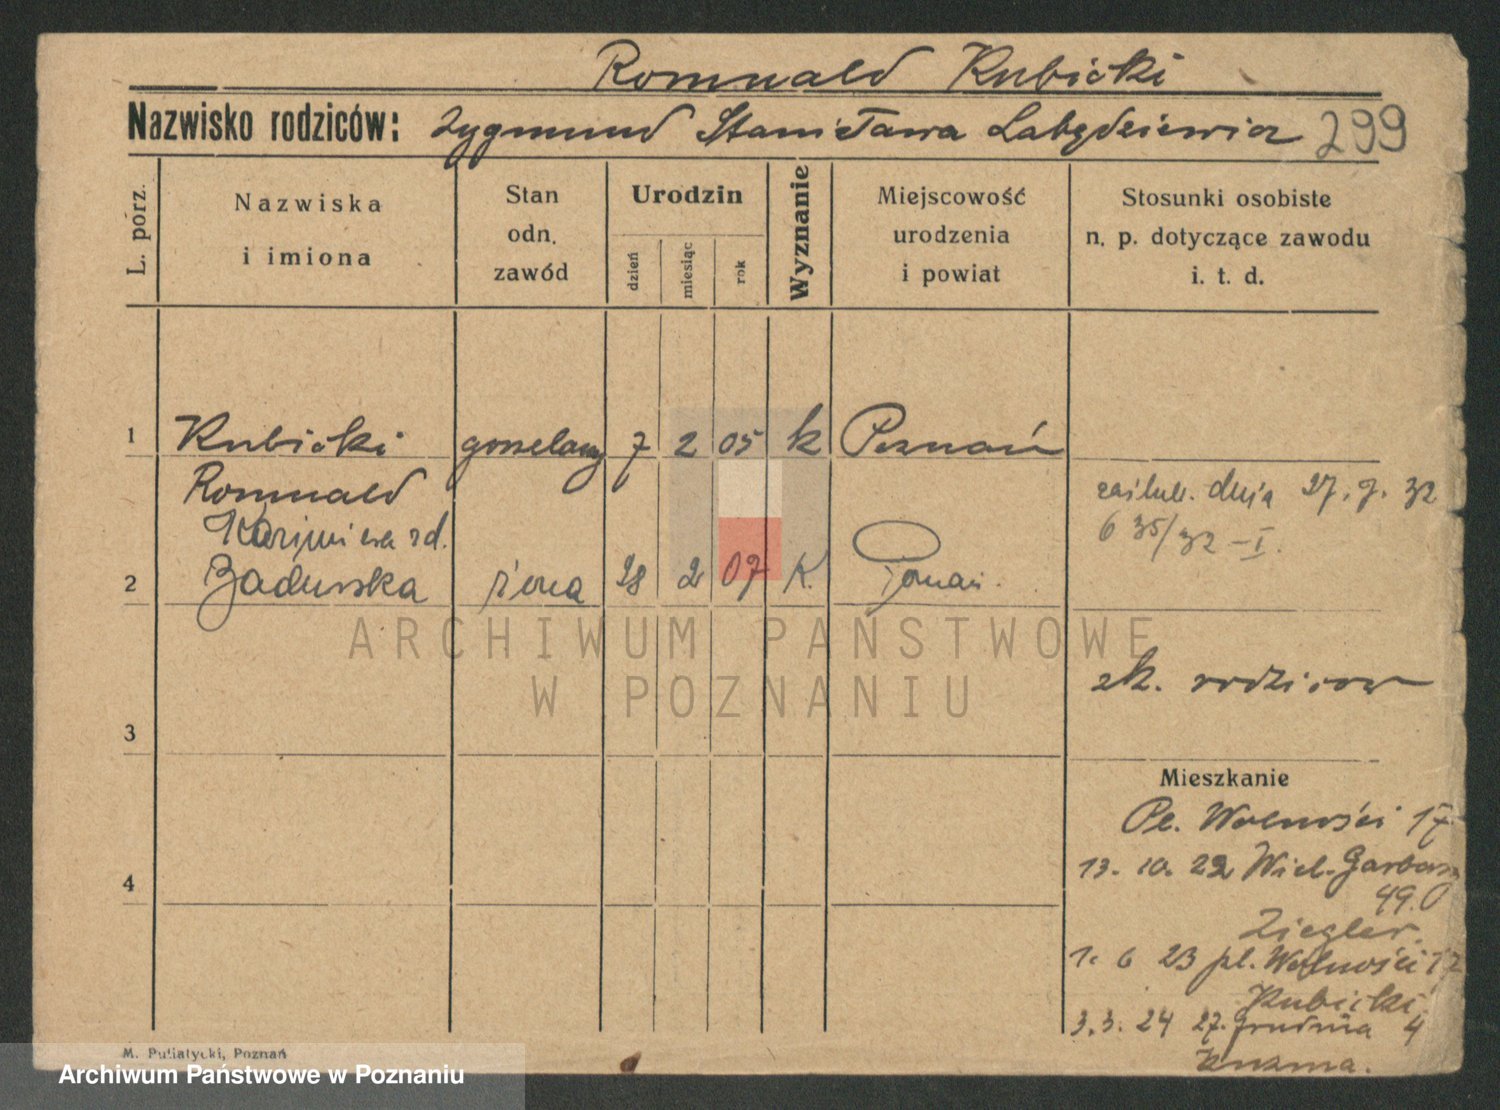 Romuald Kubicki
Nazwisko rodziców: Zygmund Stanisława Łabędziewicz 299
L. porz.
Nazwiska
i imiona
Stan
odn.
zawód
Urodzin
dzień
miesiąc
rok
Wyznanie
Miejscowość
urodzenia
i powiat
Stosunki osobiste
n. p. dotyczące zawodu
i. t. d.
1 Kubicki 7 2 05 k Poznań
Romuald
zaślub. dnia 27. 9. 32
Kazimiera rd.
635/32 – I.
2 Badurska żona 28 2 07 k. Poznań.
zk. rodziców
3
Mieszkanie
Pl. Wolności 17
13. 10. 22 Wiel. Garbary
49.
4
Ziegler.
1. 6 23 pl. Wolności 17
Kubicki
3. 3. 24 27. Grudnia 4
Kuzma.
M. Putiatycki, Poznań
ARCHIWUM PAŃSTWOWE
W POZNANIU
Archiwum Państwowe w Poznaniu